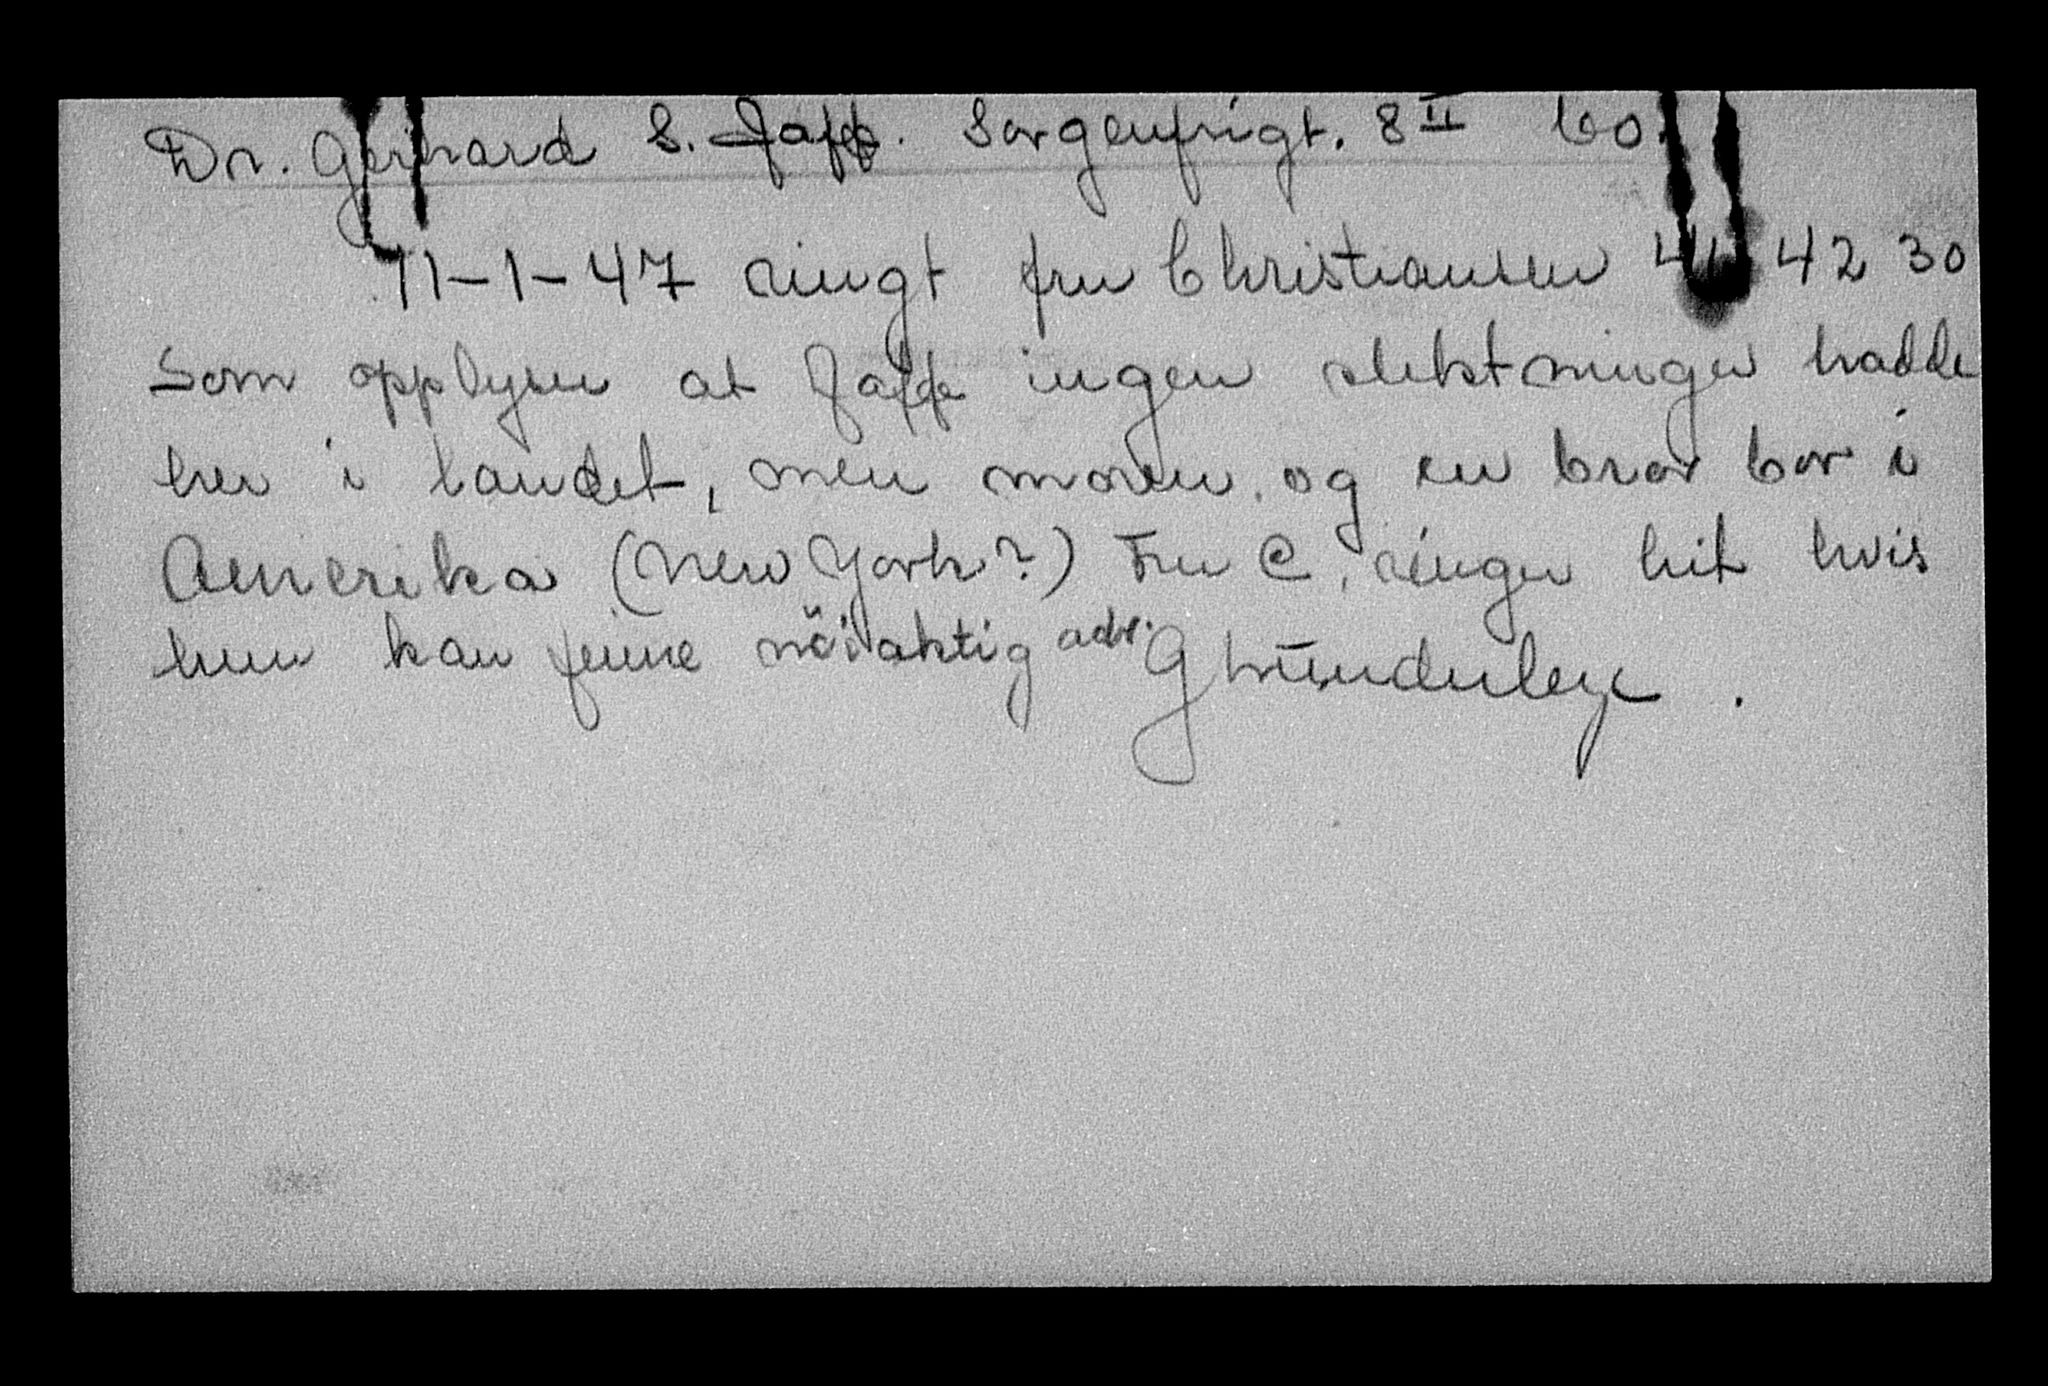 Dr. Gerhard S. Jaffe. Sorgenfrigt. 8 II bo.
11-1-47 ringt fru Christiansen 42 30
som opplyser at Jaffe ingen slektninger hadde
her i landet, men moren og en bror bor i
Amerika (New York?) Fru C. ringer hit hvis
hun kan finne nöiaktig adr.